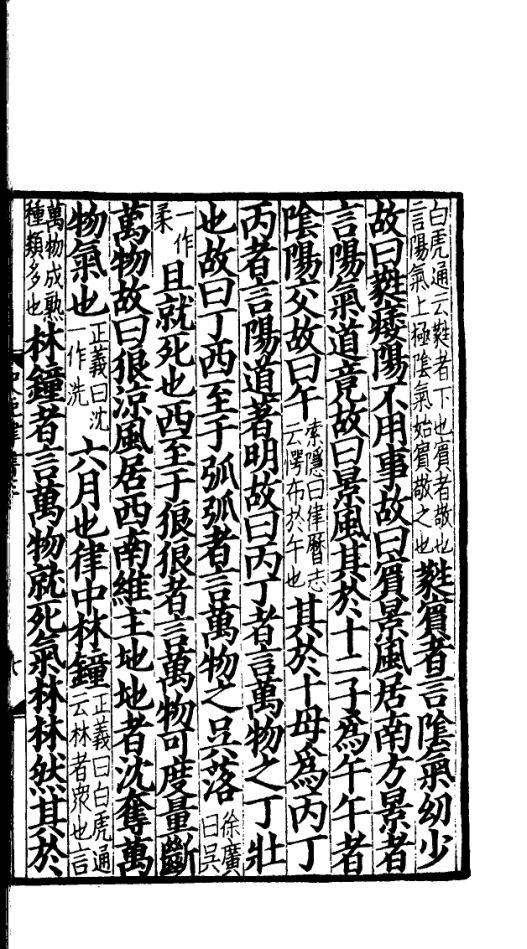 白虎通云蕤者下也賓者敬也言陽氣上極陰氣始賓敬之也蕤賓者言陰氣幼少
故曰蕤痿陽不用事故曰賓景風居南方景者
言陽氣道竟故曰景風其於十二子為午午者
陰陽交故曰午索隱曰律曆志云愕布於午也其於十母為丙丁
丙者言陽道著明故曰丙丁者言萬物之丁壯
也故曰丁西至于弧弧者言萬物之吳落徐廣曰吳
一作柔且就死也西至于狼狼者言萬物可度量斷
萬物故曰狼涼風居西南維主地地者沈奪萬
物氣也正義曰沈一作洗六月也律中林鐘正義曰白虎通云林者衆也言
萬物成熟種類多也林鐘者言萬物就死氣林林然其於